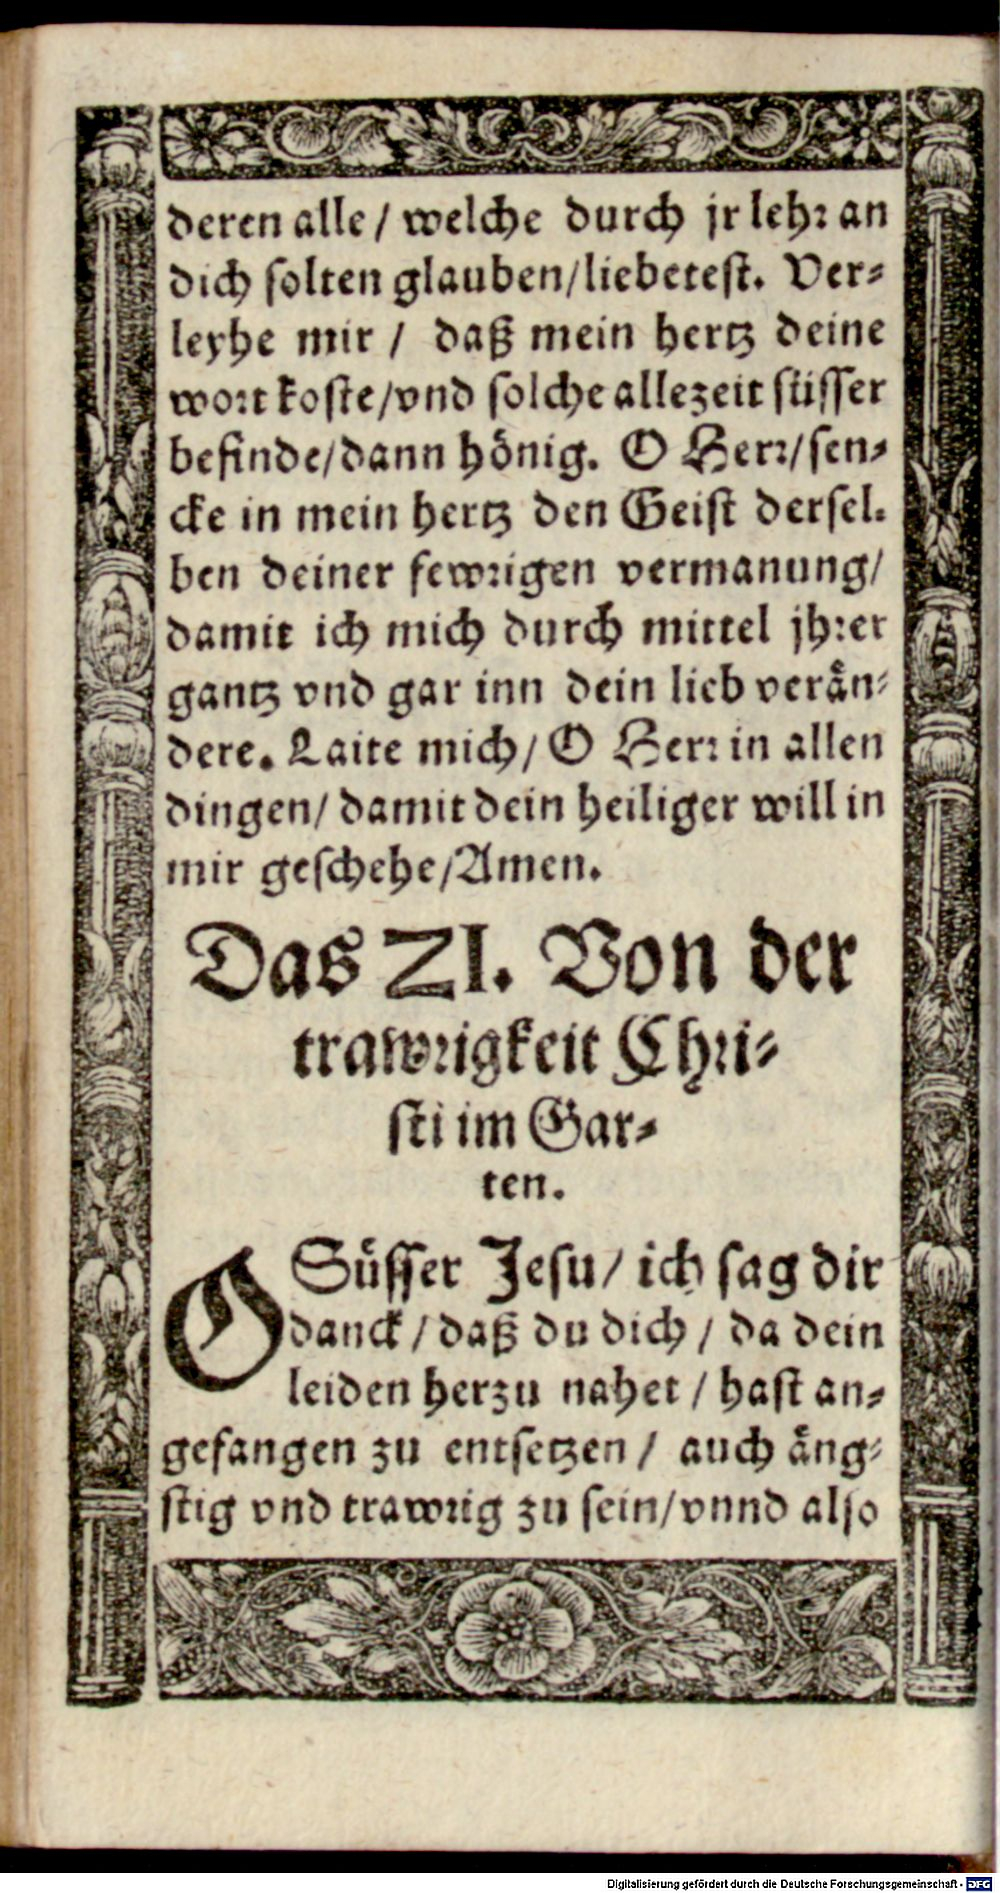 deren alle / welche durch jr lehr an
dich solten glauben/liebetest. Ver-
leyhe mir / daß mein hertz deine
wort koste/vnd solche allezeit süsser
befinde/dann hönig. O Herr/sen-
cke in mein hertz den Geist dersel-
ben deiner fewrigen vermanung/
damit ich mich durch mittel jhrer
gantz vnd gar inn dein lieb verän-
dere. Laite mich/ O Herr in allen
dingen/ damit dein heiliger will in
mir geschehe/Amen.
Das XI. Von der
trawrigkeit Chri-
sti im Gar-
ten.
O Süsser Jesu/ ich sag dir
danck / daß du dich / da dein
leiden herzu nahet / hast an-
gefangen zu entsetzen / auch äng-
stig vnd trawrig zu sein/vnnd also
Digitalisierung gefördert durch die Deutsche Forschungsgemeinschaft - DFG